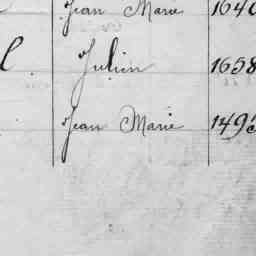 Jean Marie 164
l Julien 1658
Jean Marie 1493